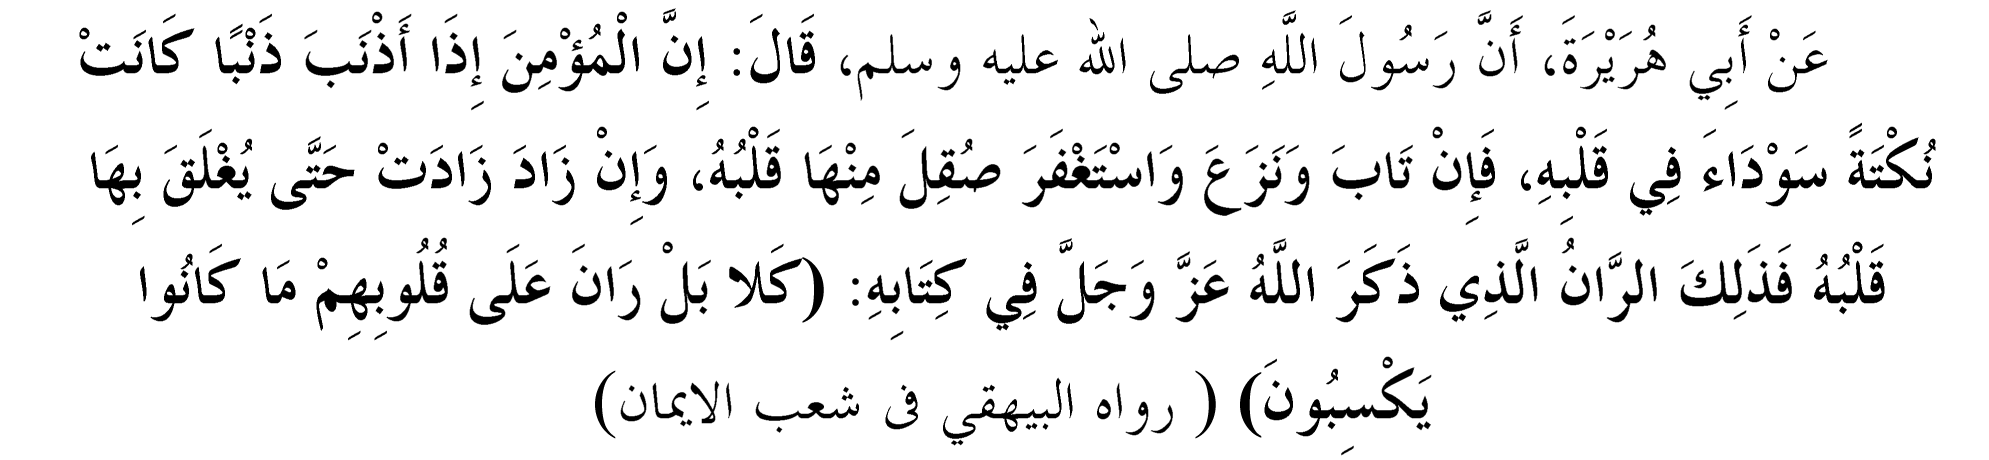 عَنْ أَبِي هُرَيْرَةَ، أَنَّ رَسُولَ اللَّهِ صلى الله عليه وسلم، قَالَ: إِنَّ الْمُؤْمِنَ إِذَا أَذْنَبَ ذَنْبًا كَانَتْ
نُكْتَةً سَوْدَاءَ فِي قَلْبِهِ، فَإِنْ تَابَ وَنَزَعَ وَاسْتَغْفَرَ صُقِلَ مِنْهَا قَلْبُهُ، وَإِنْ زَادَ زَادَتْ حَتَّى يُغْلَقَ بِهَا
قَلْبُهُ فَذَلِكَ الرَّانُ الَّذِي ذَكَرَ اللَّهُ عَزَّ وَجَلَّ فِي كِتَابِهِ: (كَلا بَلْ رَانَ عَلَى قُلُوبِهِمْ مَا كَانُوا
يَكْسِبُونَ) ( رواه البيهقي فى شعب الايمان)